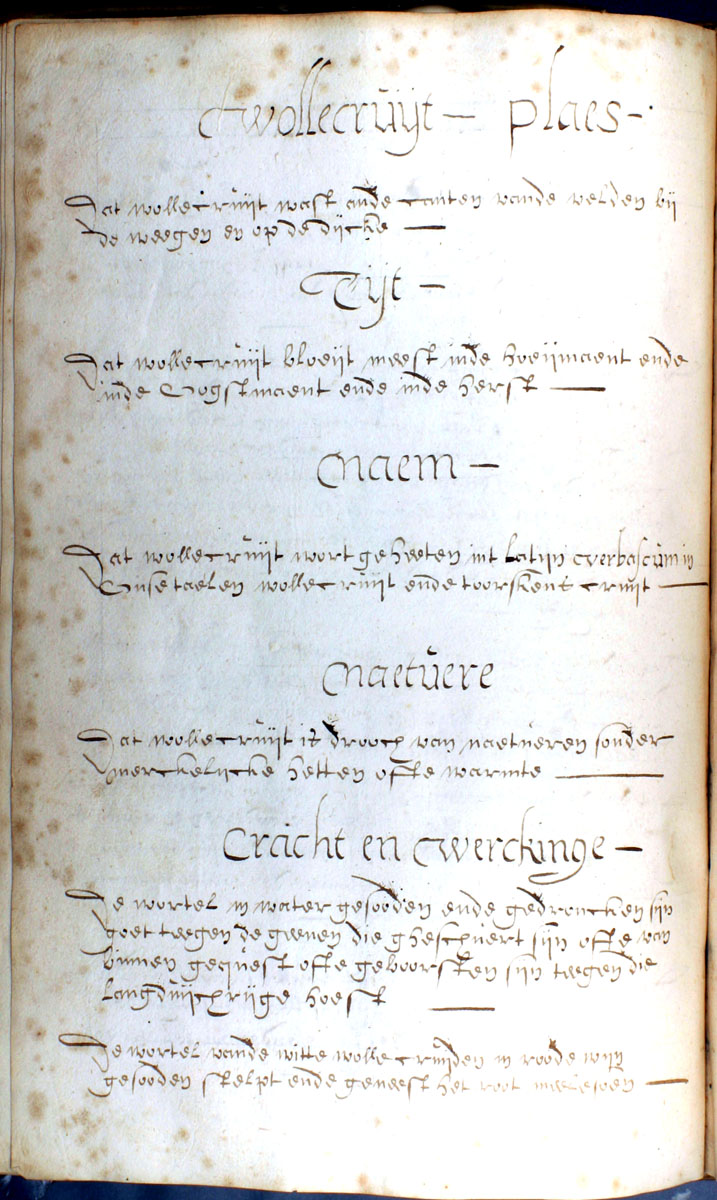 Wollecruijt – plaes –
Dat wollecruijt wast ande canten vande velden bij
de weegen en op de dijcke —
Tijt –
Dat wollecruijt bloeijt meest inde hoeijmaent ende
inde Oogstmaent ende inde herst —
Naem –
Dat wollecruijt wort geheeten int latijn verbascum in
Onse taelen wollecruijt ende toorskens cruijt —
Naetuere
Dat wollecruijt is drooch van naetueren sonder
merckelijcke hetten ofte warmte —
Cracht en Werckinge –
De wortel in water gesooden ende gedroncken sijn
goet teegen de geenen die ghescheurt sijn ofte van
binnen gequest ofte geboorsten sijn teegen die
langduijrijge hoest —
De wortel vande witte wolle cruijden in roode wijn
gesooden stelpt ende geneest het root meelesoen —